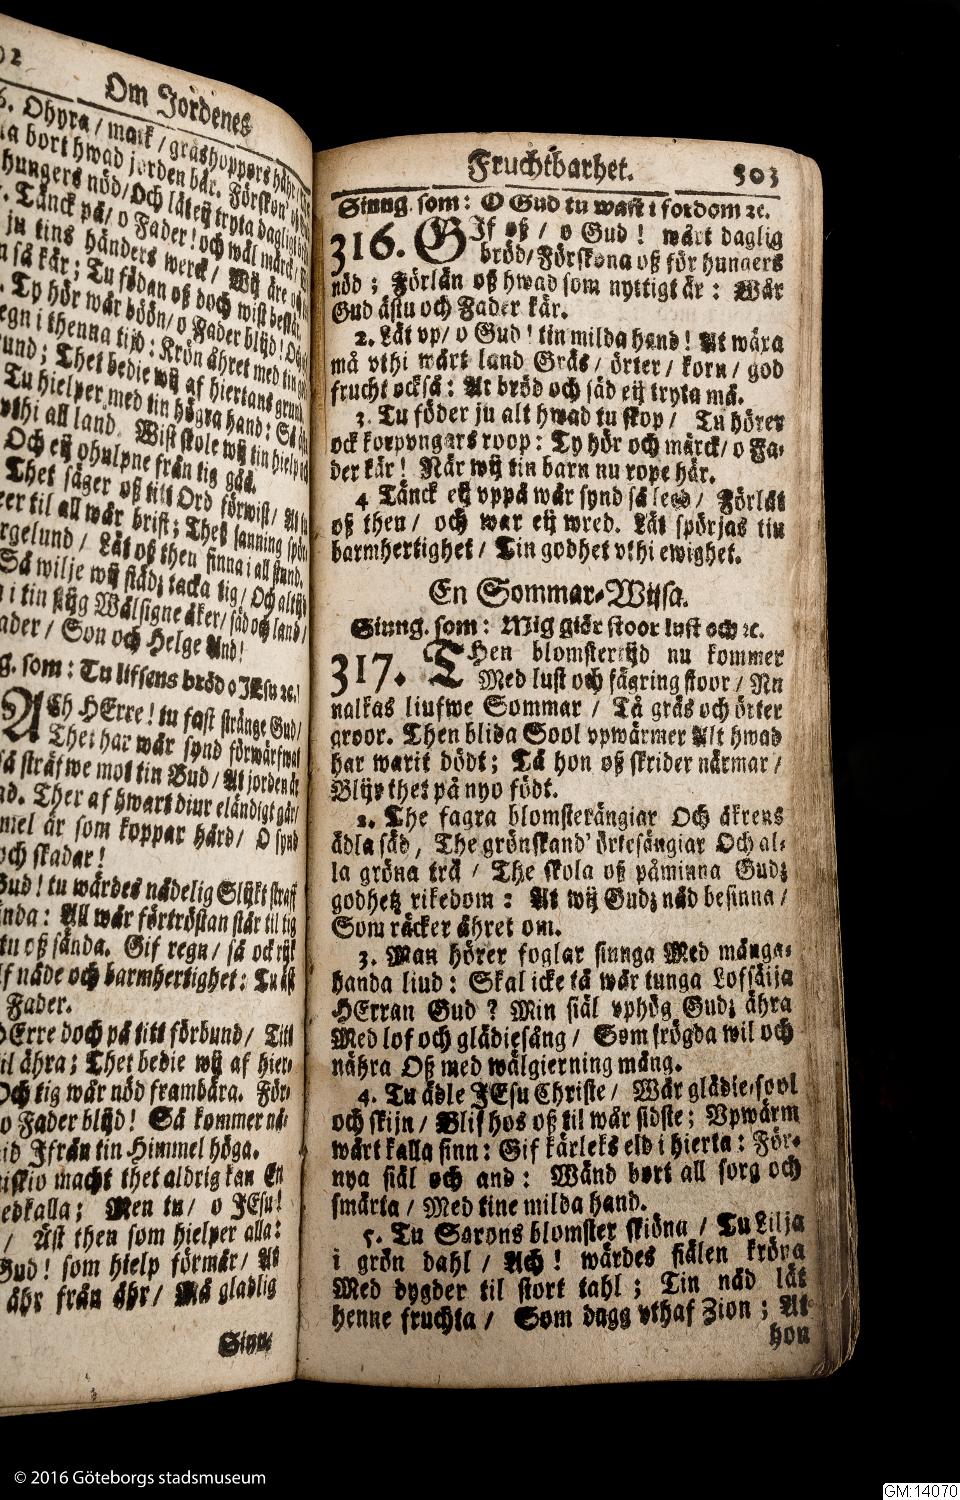 Om Jordenes
6. Ohyra / mask / gräshoppors häär /
bort hwad jorden bär. Förskon
hungers nöd / Och låt eij tryta daglig
Tänck på / o Fader! och wäl märck /
ju tins händers werck / Wij äre
så kär; Tu födan oß doch wist bestär.
Ty hör wår böön / o Fader blijd!
regn i thenna tijd: Krön åhret med tin
Thet bedie wij af hiertans grund
Tu hielper med tin högra hand: Så
vthi all land. Wist skole wij tin hielp
Och eij ohulpne från tig gåå.
Thet säger oß titt Ord förwist /
til all wår brist; Thes sanning
Låt oß then finna i all stund.
Så wilje wij städz tacka tig / Och altijd
i tin stijg Wälsigne åker / säd och land /
Fader / Son och Helge And!
som: Tu lifsens bröd o JEsu ꝛc.
ACh HErre! tu fast stränge Gud /
Thet har wår synd förwärfwat
sträfwe mot tin Bud / At jorden är
Ther af hwart diur eländigt går /
är som koppar hård / O synd
och skadar!
Gud! tu wärdes nådelig Slijkt straff
wända: All wår förtröstan står til tig
tu oß sända. Gif regn / så ock rijk
nåde och barmhertighet: Tu äst
Fader.
HErre doch på titt förbund / Titt
til ähra; Thet bedie wij af hier-
Och tig wår nöd frambära. För-
o Fader blijd! Så kommer nå-
Ifrån tin Himmel höga.
macht thet aldrig kan En
Men tu / o JEsu!
/ Äst then som hielper alla:
Gud! som hielp förmår / At
åhr från åhr / Må gladlig
Siun-
Fruchtbarhet. 503
Siung. som: O Gud tu wast i fordom ꝛc.
316. GIf oß / o Gud! wårt daglig
bröd / Förskona oß för hungers
nöd; Förlän oß hwad som nyttigt är: Wår
Gud ästu och Fader kär.
2. Låt vp / o Gud! tin milda hand! At wäxa
må vthi wårt land Gräs / örter / korn / god
frucht också: At bröd och säd eij tryta må.
3. Tu föder ju alt hwad tu skop / Tu hörer
ock korpvngars roop: Ty hör och märck / o Fa-
der kär! När wij tin barn nu rope här.
4 Tänck eij vppå wår synd så leed / Förlåt
oß then / och war eij wred. Låt spörjas tin
barmhertighet / Tin godhet vthi ewighet.
En Sommar-Wijsa.
Siung. som: Mig giör stoor lust och ꝛc.
317. THen blomstertijd nu kommer
Med lust och fägring stoor / Nu
nalkas liufwe Sommar / Tå gräs och örter
groor. Then blida Sool vpwärmer Alt hwad
har warit dödt; Tå hon oß skrider närmar /
Blijr thet på nyo födt.
2. The fagra blomsterängiar Och åkrens
ädla säd, The grönskand' örtesängiar Och al-
la gröna trä / The skola oß påminna Gudz
godhetz rikedom: At wij Gudz nåd besinna /
Som räcker åhret om.
3. Man hörer foglar siunga Med många-
handa liud: Skal icke tå wår tunga Lofsäija
HErran Gud? Min siäl vphög Gudz ähra
Med lof och glädiesång / Som frögda wil och
nähra Oß med wälgierning mång.
4. Tu ädle JEsu Christe / Wår glädie-sool
och skijn / Blif hos oß til wår sidste; Vpwärm
wårt kalla sinn: Gif kärleks eld i hierta: För-
nya siäl och and: Wänd bort all sorg och
smärta / Med tine milda hand.
5. Tu Sarons blomster skiöna / Tu Lilja
i grön dahl / Ach! wärdes siälen kröna
Med dygder til stort tahl; Tin nåd låt
henne fruchta / Som dagg vthaf Zion; At
hon
© 2016 Göteborgs stadsmuseum
GM:14070